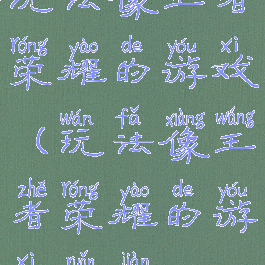 玩法像王者
róng yào de yóu xì
荣耀的游戏
wán fǎ xiàng wáng
(玩法像王
zhě róng yào de yóu
者荣耀的游
xì ruǎn jiàn